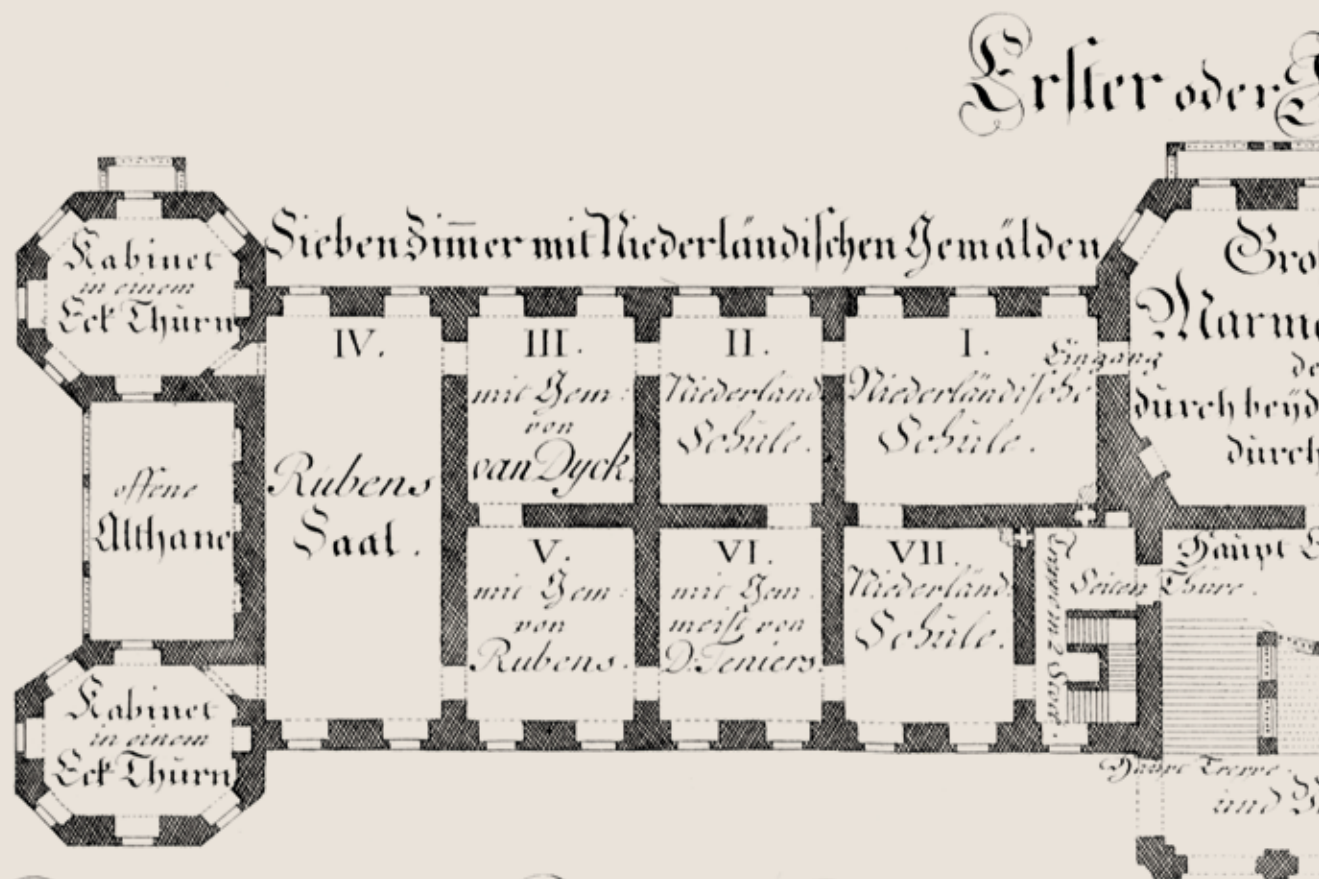 Erster oder
Sieben Zim̅er mit Niederländischen Gemälden
Kabinet
in einem
Eck Thürn
offene
Althane
Kabinet
in einem
Eck Thürn
IV.
Rubens
Saal.
III.
mit Gem:
von
van Dyck.
II.
Niederländ
Schule.
I.
Eingang
Niederländische
Schule.
V.
mit Gem:
von
Rubens.
VI.
mit Gem.
meist von
D. Teniers.
VII.
Niederländ:
Schule.
Seiten Thüre.
Gro
Marmo
de
durch beyd
durch
Haupt
Haupt Treppe.
und